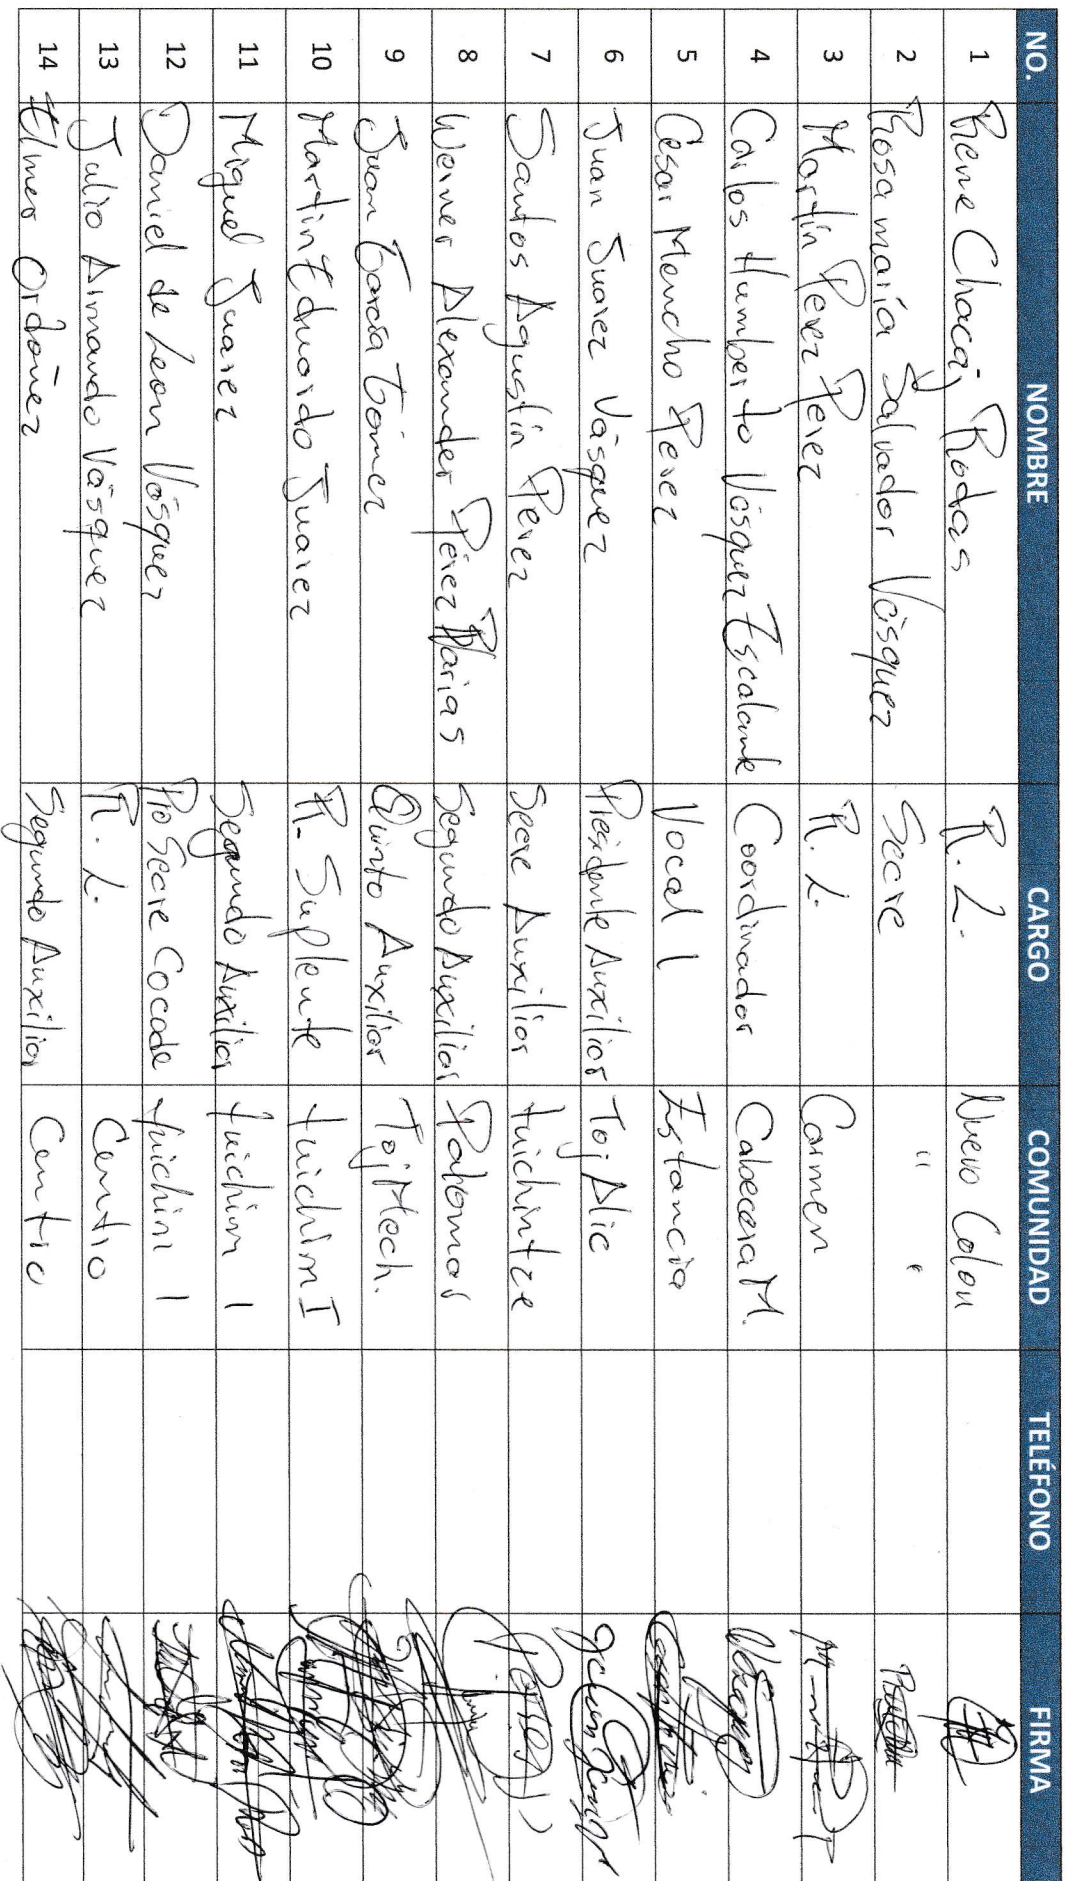 NO. NOMBRE CARGO COMUNIDAD TELÉFONO FIRMA
1 Rene Chacaj Rodas R. L. Nuevo Colon
2 Rosa maría Salvador Vásquez Secre " "
3 Martín Perez Perez R. L. Carmen
4 Carlos Humberto Vásquez Escalante Coordinador Cabecera M.
5 Cesar Mencho Perez Vocal 1 Estancia
6 Juan Suarez Vásquez Presidente Auxiliar Toj Alic
7 Santos Agustín Perez Secre Auxiliar tuichintze
8 Werner Alexander Pérez Segundo Auxiliar Palomar
9 Juan García Gómez Quinto Auxiliar Toj Mech.
10 Martin Eduardo Juarez R. Suplente tuichim I
11 Miguel Juarez Segundo Auxiliar tuichim 1
12 Daniel de Leon Vásquez Pro Secre Cocode tuichim 1
13 Julio Armando Vásquez R. L. Centro
14 Elmer Ordoñez Segundo Auxiliar Centro